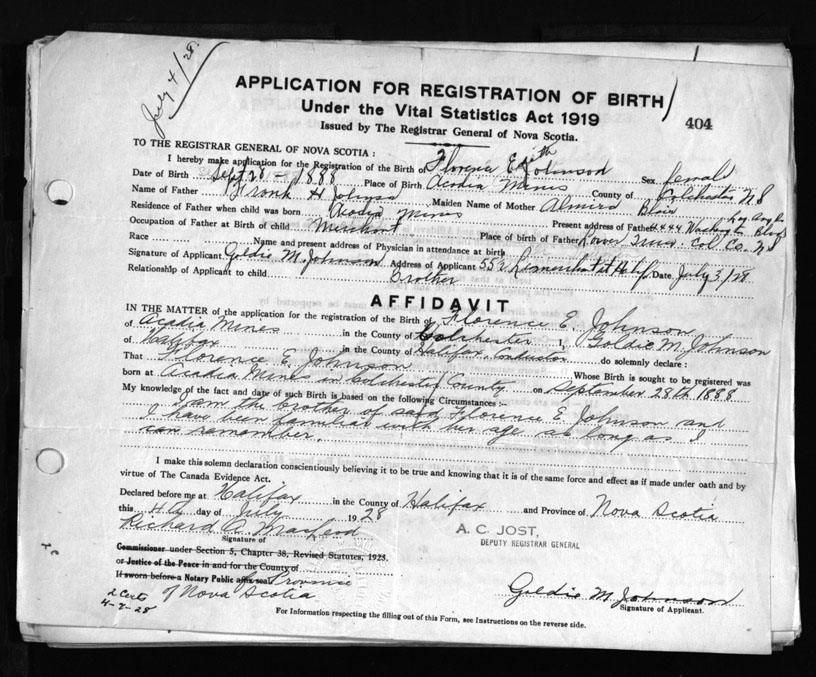 July 4/28.
APPLICATION FOR REGISTRATION OF BIRTH
Under the Vital Statistics Act 1919
404
Issued by The Registrar General of Nova Scotia.
TO THE REGISTRAR GENERAL OF NOVA SCOTIA :
I hereby make application for the Registration of the Birth of Florence Edith Johnson Sex female
Date of Birth Sept 28 - 1888 Place of Birth Acadia Mines County of Colchester N S
Name of Father Frank H Johnson Maiden Name of Mother Almira Blair
Residence of Father when child was born Acadia Mines Present address of Father 4444 Washington Blvd Los Angeles
Occupation of Father at Birth of child Merchant Place of birth of Father Lower Truro. Col. Co. N S
Race Name and present address of Physician in attendance at birth
Signature of Applicant Goldie M. Johnson Address of Applicant 55 Hlfx Date July 3/28
Relationship of Applicant to child Brother
AFFIDAVIT
IN THE MATTER of the application for the registration of the Birth of Florence E. Johnson
of Acadia Mines in the County of Colchester I, Goldie M. Johnson
of Halifax in the County of Halifax, Conductor do solemnly declare :
That Florence E. Johnson Whose Birth is sought to be registered was
born at Acadia Mine in Colchester County on September 28th 1888
My knowledge of the fact and date of such Birth is based on the following Circumstances :-
I am the brother of said Florence E Johnson and
I have been familiar with her age as long as I
can remamber.
I make this solemn declaration conscientiously believing it to be true and knowing that it is of the same force and effect as if made under oath and by
virtue of The Canada Evidence Act.
Declared before me at Halifax in the County of Halifax and Province of Nova Scotia
this 4th day of July 1928
Richard A. MacLeod
A. C. JOST,
DEPUTY REGISTRAR GENERAL
Signature of
Commissioner under Section 5, Chapter 38, Revised Statutes, 1923.
or Justice of the Peace in and for the County of
If sworn before a Notary Public affix seal Province
of Nova Scotia
Goldie M Johnson
Signature of Applicant.
2 Certs
4-7-28
For Information respecting the filling out of this Form, see Instructions on the reverse side.